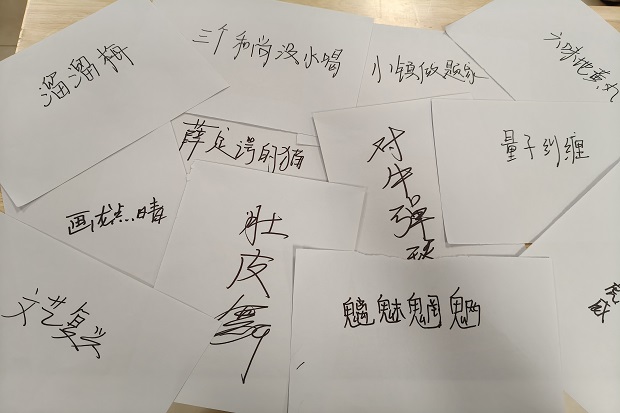 溜溜梅
三个和尚没水喝
小镇做题家
六味地黄丸
薛定谔的猫
对牛弹
量子纠缠
画龙点睛
肚皮舞
文艺复兴
魑魅魍魉